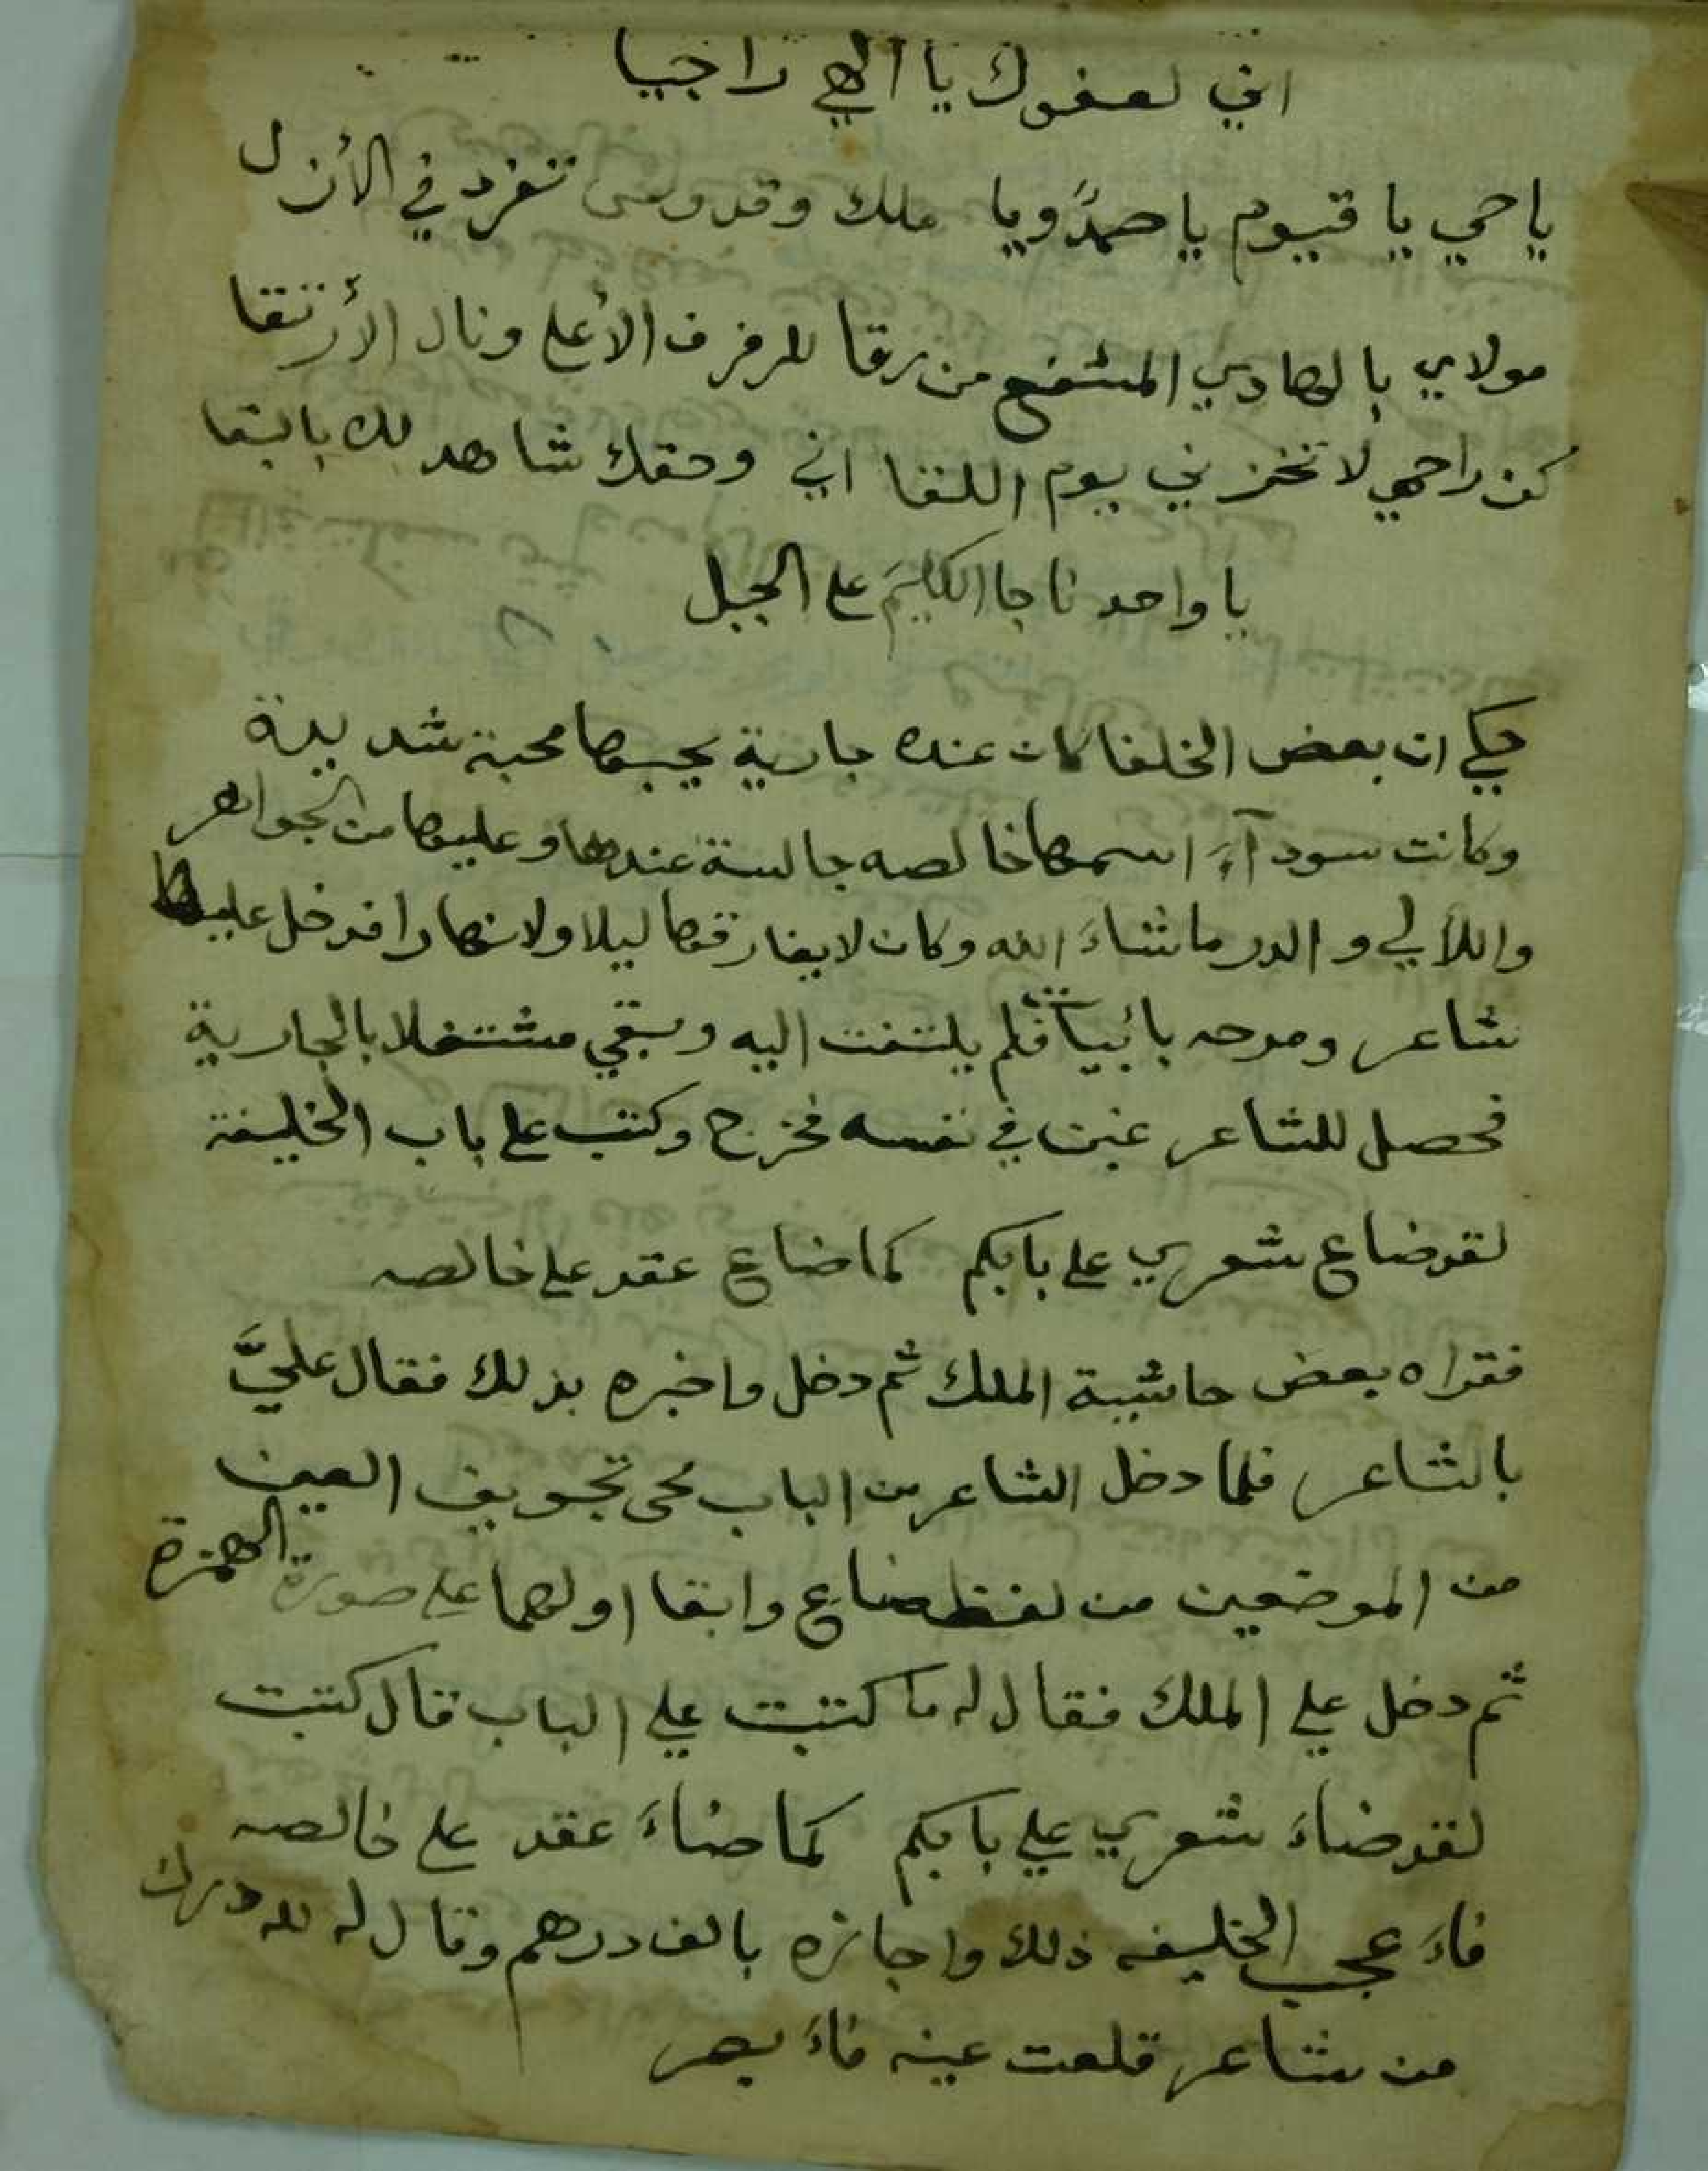 اني لعفوك يا الهي راجيا
يا حي يا قيوم يا صمدً ويا ملك وقدوس تفرد في الأزل
مولاي بالهادي المشفع من رقا للرفرف الأعلى ونال الأرتقا
كن راحمي لا تخزني يوم اللقا اني وحقك شاهد لك بالبقا
يا واحد ناجا الكليمَ على الجبل
حكي ان بعض الخلفا كان عنده جارية يحبها محبة شديدة
وكانت سودآءَ اسمها خالصه جالسة عندها وعليها من الجواهر
واللألي والدر ماشاءَ الله وكان لا يفارقها ليلا ولا نهارا فدخل عليها
شاعر ومدحه بأبيات فلم يلتفت اليه وبقي مشتغلا بالجارية
فحصل للشاعر غبن في نفسه فخرج وكتب على باب الخليفة
لقد ضاع شعري على بابكم كما ضاع عقد على خالصه
فقراه بعض حاشية الملك ثم دخل واخبره بذلك فقال عليَّ
بالشاعر فلما دخل الشاعر من الباب محى تجويف العين
من الموضعين من لفظ ضاع وابقا اولهما على صورة الهمزة
ثم دخل على الملك فقال له ما كتبت على الباب قال كتبت
لقد ضاءَ شعري على بابكم كما ضاءَ عقد على خالصه
فاءَعجب الخليفه ذلك واجازه بالف درهم وقال له لله درك
من شاعر قلعت عينه فاءَبصر